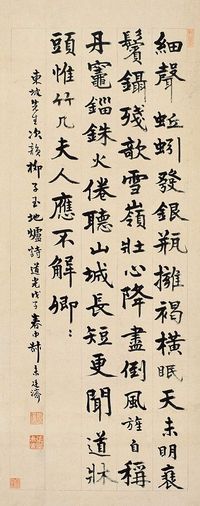 細聲蚯蚓發銀瓶擁褐橫眠天未明衰
鬢鑷殘欹雪嶺壯心降盡倒風旌自稱
丹竈錙銖火倦聽山城長短更聞道牀
頭惟竹几夫人應不解卿〻
東坡先生次韻柳子玉地爐詩道光戊子春叔未廷濟